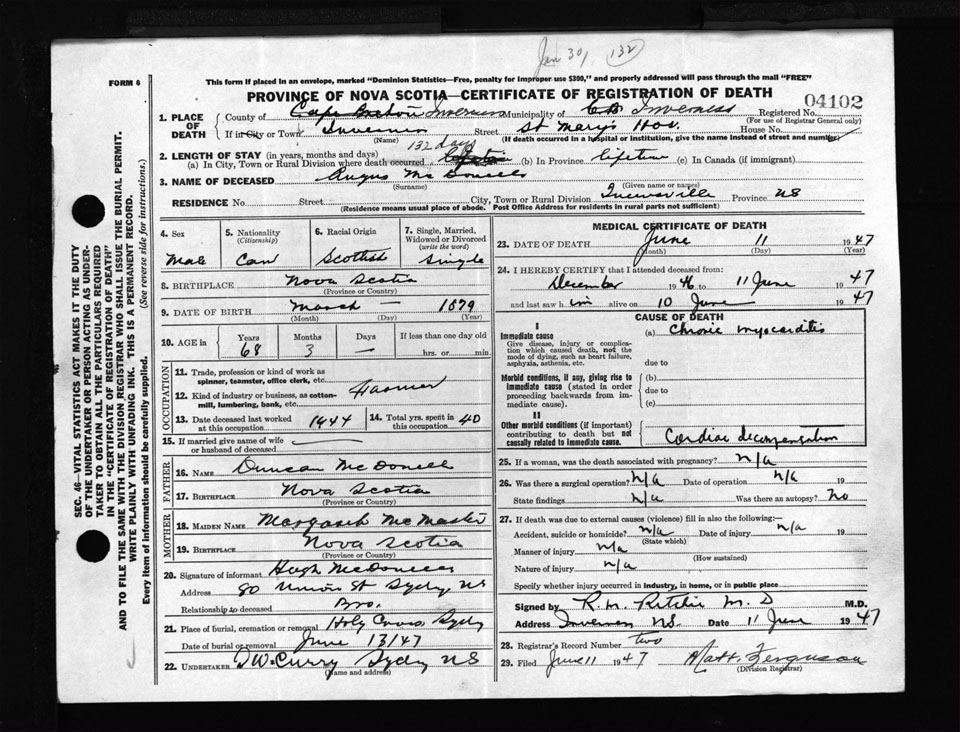 Jan 30/ 132
FORM 6
This form if placed in an envelope, marked "Dominion Statistics—Free, penalty for improper use $300," and properly addressed will pass through the mail "FREE"
PROVINCE OF NOVA SCOTIA—CERTIFICATE OF REGISTRATION OF DEATH
04102
1. PLACE OF DEATH
County of Cape Breton Inverness Municipality of Inverness Registered No.
(For use of Registrar General only)
If in City or Town Inverness Street St Marys Hos. House No.
(Name) (If death occurred in a hospital or institution, give the name instead of street and number)
132 days
2. LENGTH OF STAY (in years, months and days)
(a) In City, Town or Rural Division where death occurred (b) In Province Lifetime (c) In Canada (if immigrant)
3. NAME OF DECEASED Angus McDonell
(Surname) (Given name or names)
RESIDENCE No. Street City, Town or Rural Division Province NS
(Residence means usual place of abode. Post Office Address for residents in rural parts not sufficient)
SEC. 46—VITAL STATISTICS ACT MAKES IT THE DUTY
OF THE UNDERTAKER OR PERSON ACTING AS UNDER-
TAKER TO OBTAIN ALL THE PARTICULARS REQUIRED
IN THE "CERTIFICATE OF REGISTRATION OF DEATH"
AND TO FILE THE SAME WITH THE DIVISION REGISTRAR WHO SHALL ISSUE THE BURIAL PERMIT.
WRITE PLAINLY WITH UNFADING INK. THIS IS A PERMANENT RECORD.
Every item of Information should be carefully supplied. (See reverse side for instructions.)
4. Sex 5. Nationality (Citizenship) 6. Racial Origin 7. Single, Married, Widowed or Divorced (write the word)
Male Can Scottish Single
8. BIRTHPLACE Nova Scotia
(Province or Country)
9. DATE OF BIRTH March 1879
(Month) (Day) (Year)
10. AGE in Years Months Days If less than one day old
68 3 — hrs. or min.
OCCUPATION
11. Trade, profession or kind of work as
spinner, teamster, office clerk, etc.
12. Kind of industry or business, as cotton-
mill, lumbering, bank, etc. Farmer
13. Date deceased last worked at this occupation 1944 14. Total yrs. spent in this occupation 40
15. If married give name of wife
or husband of deceased
FATHER
16. NAME Duncan McDonell
17. BIRTHPLACE Nova Scotia
(Province or Country)
MOTHER
18. MAIDEN NAME Margaret McMaster
19. BIRTHPLACE Nova Scotia
(Province or Country)
20. Signature of informant Hugh McDonell
Address 80 Union St Sydney NS
Relationship to deceased Bro.
21. Place of burial, cremation or removal Holy Cross, Sydney
Date of burial or removal June 13/47
22. UNDERTAKER Curry Sydney NS
(Name and address)
MEDICAL CERTIFICATE OF DEATH
23. DATE OF DEATH June 11 1947
(Month) (Day) (Year)
24. I HEREBY CERTIFY that I attended deceased from:
December 1946 to 11 June 1947
and last saw him alive on 10 June 1947
CAUSE OF DEATH
I
Immediate cause (a) Chronic myocarditis
Give disease, injury or complica-
tion which caused death, not the
mode of dying, such as heart failure,
asphyxia, asthenia, etc. due to
Morbid conditions, if any, giving rise to (b)
immediate cause (stated in order
proceeding backwards from im-
mediate cause). due to
(c)
II
Other morbid conditions (if important)
contributing to death but not
causally related to immediate cause. Cardiac decompensation
25. If a woman, was the death associated with pregnancy? n/a
26. Was there a surgical operation? n/a Date of operation n/a 19
State findings n/a Was there an autopsy? No
27. If death was due to external causes (violence) fill in also the following:—
Accident, suicide or homicide? n/a Date of injury n/a 19
(State which)
Manner of injury n/a
(How sustained)
Nature of injury n/a
Specify whether injury occurred in industry, in home, or in public place
Signed by R. M. Ritchie M. D M.D.
Address Inverness NS. Date 11 June 1947
28. Registrar's Record Number two
29. Filed June 11 1947 Matt. Ferguson
(Division Registrar)